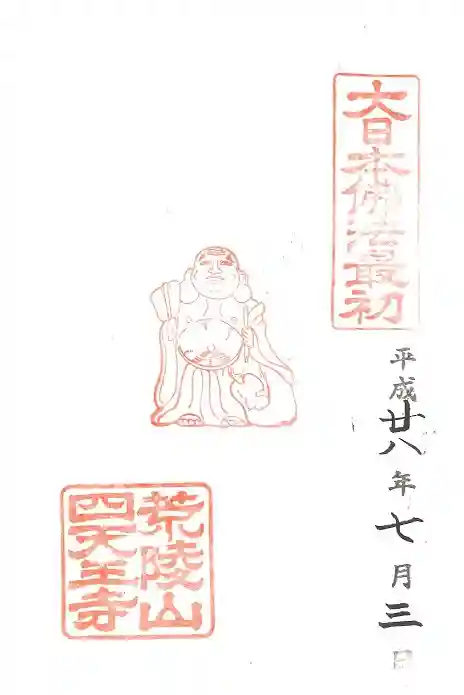 大日本佛法最初
平成廿八年七月三日
荒陵山
四天王寺